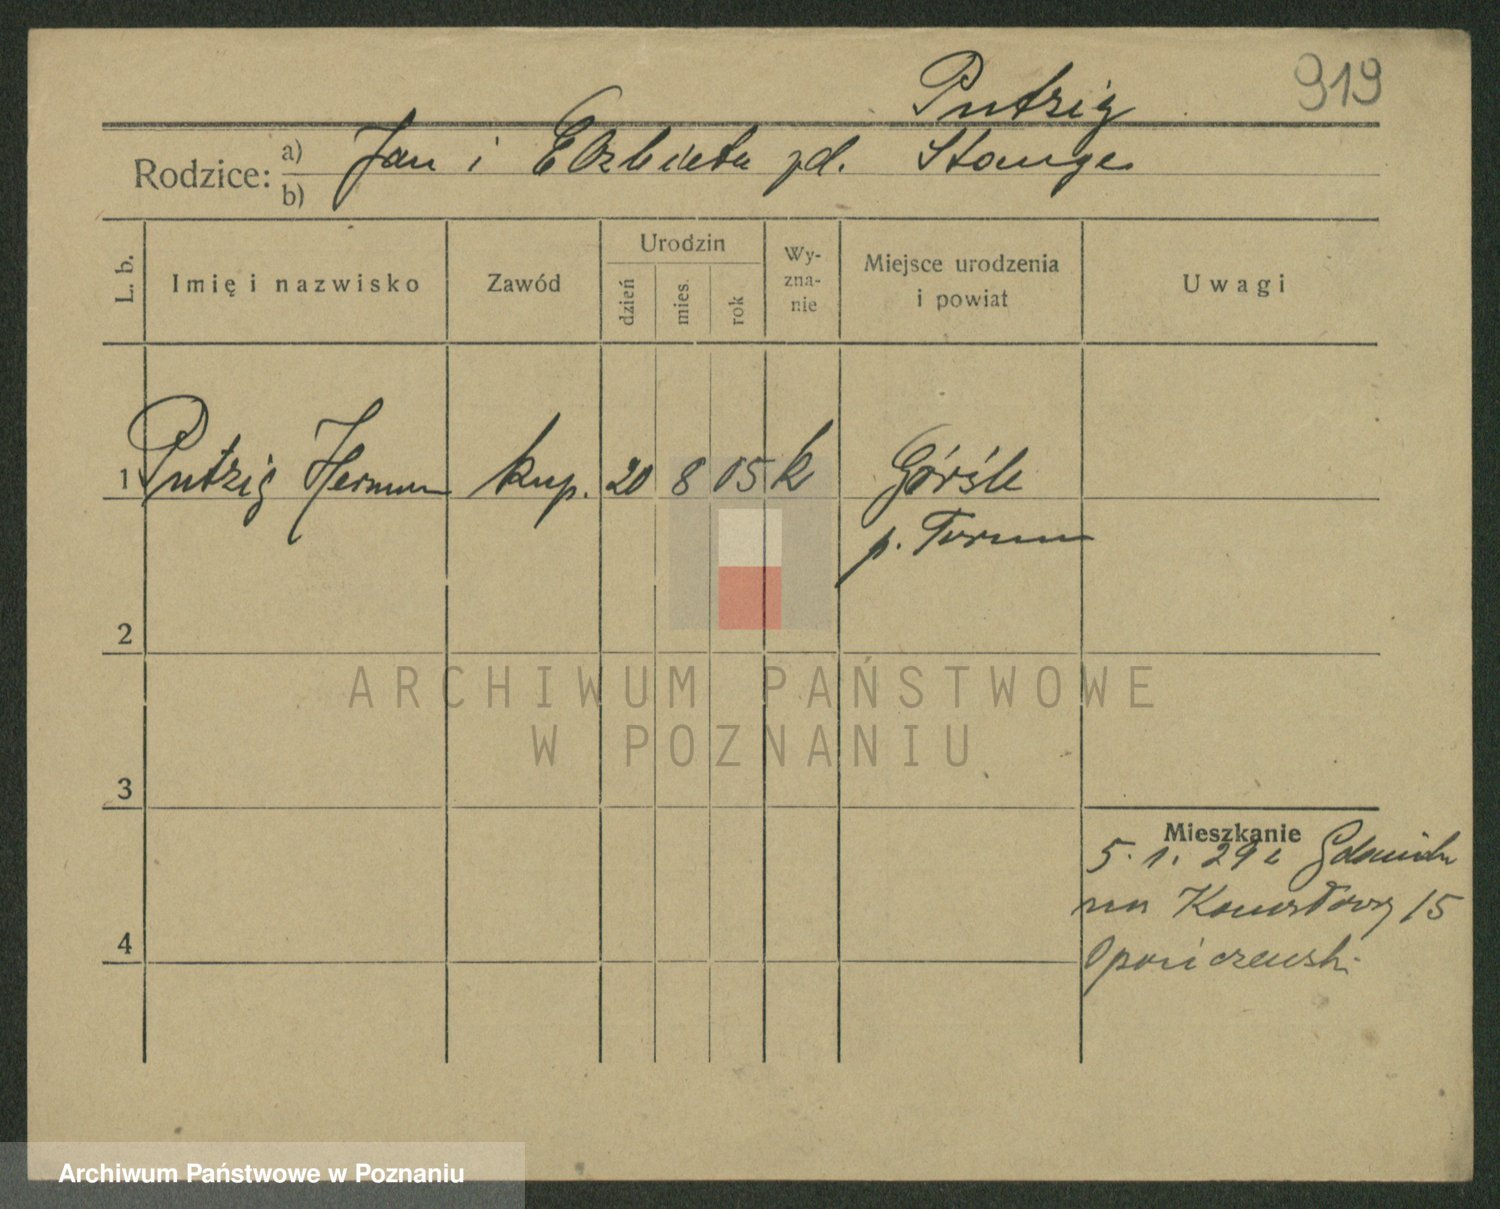 Putzig
919
Rodzice: a) b) Jan i Elżbieta zd. Stange
L. b.
Imię i nazwisko
Zawód
Urodzin
dzień
mies.
rok
Wy-
zna-
nie
Miejsce urodzenia
i powiat
Uwagi
1 Putzig Herman kup. 20 8 05 k Górsk
p. Toruń
2
3
4
Mieszkanie
5. 1. 29 z Gdańska
na 15
ARCHIWUM PAŃSTWOWE
W POZNANIU
Archiwum Państwowe w Poznaniu